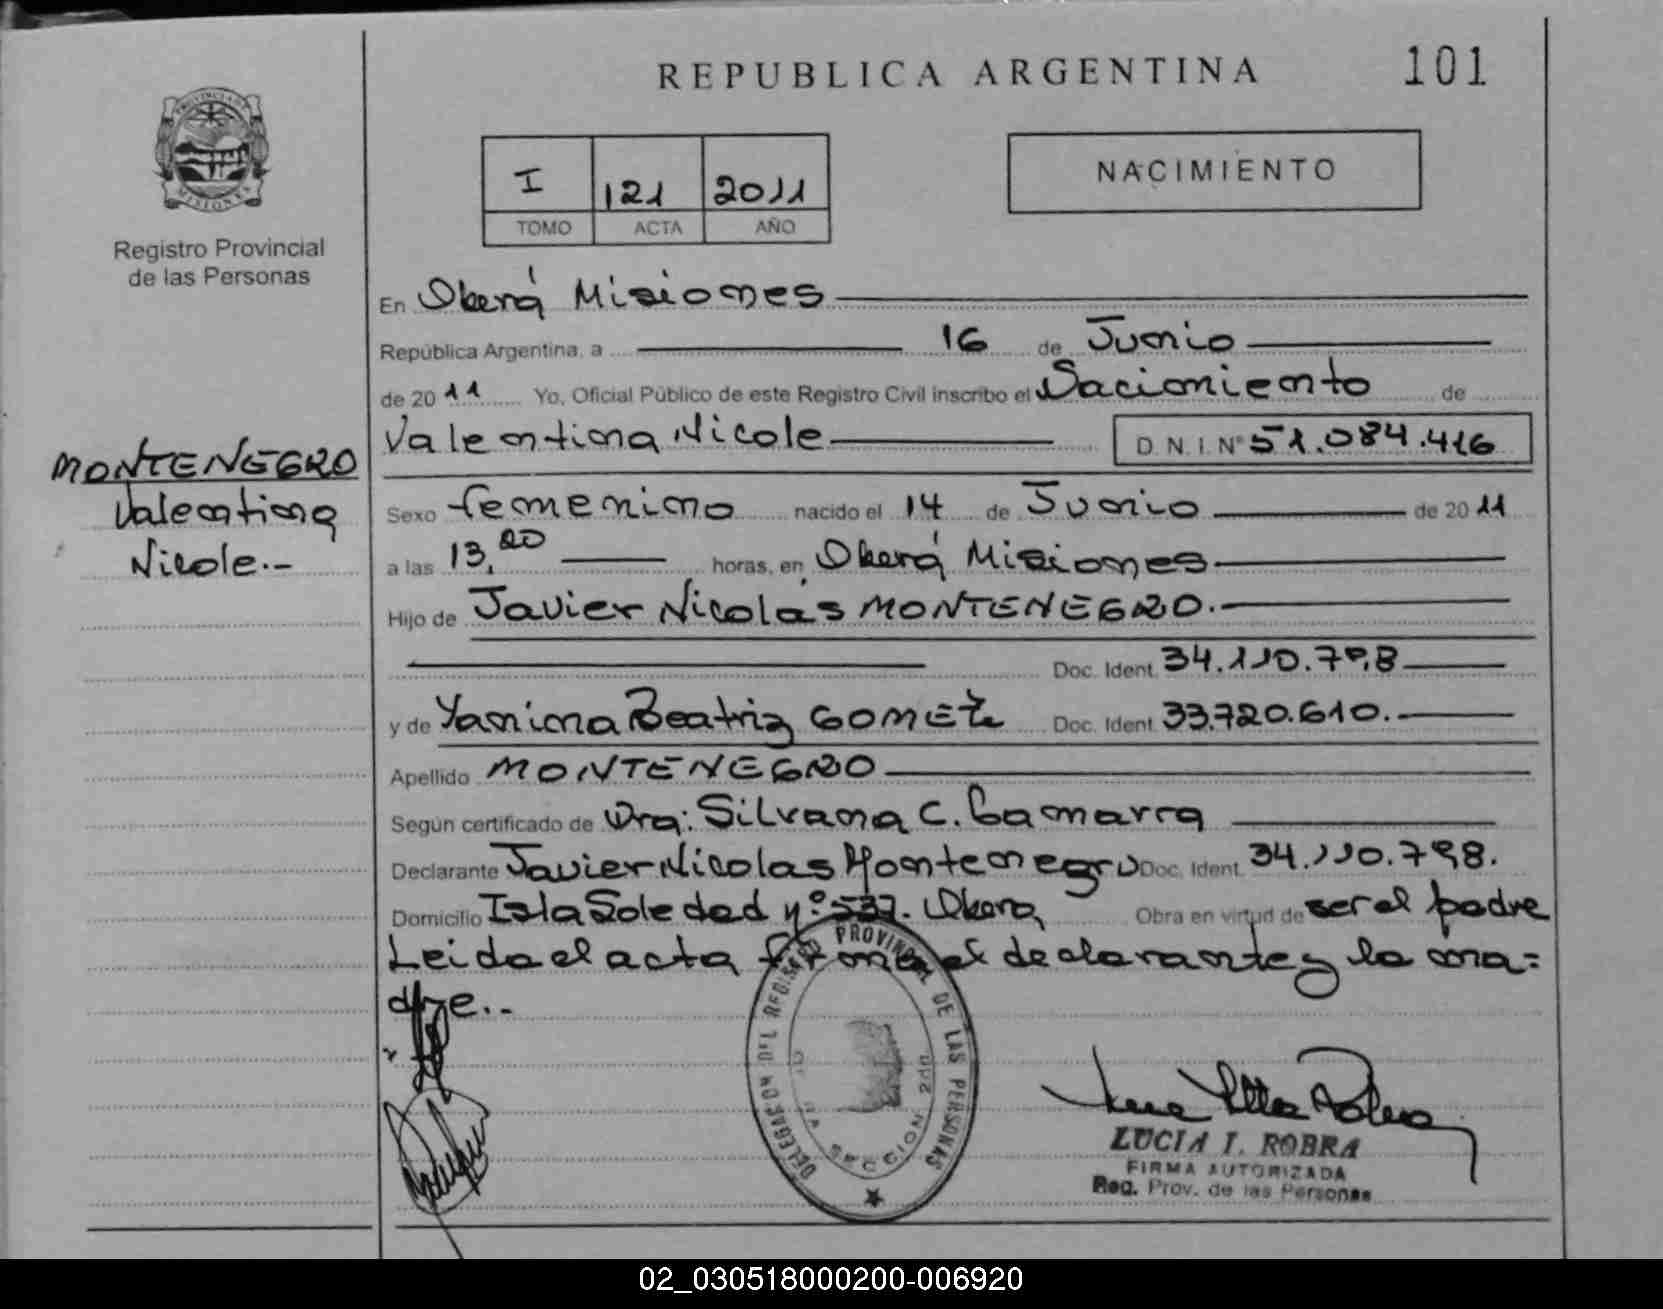 REPUBLICA ARGENTINA
101
PROVINCIA DE
MISIONES
Registro Provincial
de las Personas
I 121 2011
TOMO ACTA AÑO
NACIMIENTO
En Oberá Misiones
República Argentina, a 16 de Junio
de 2011 Yo, Oficial Público de este Registro Civil inscribo el Nacimiento de
Valentina Nicole D.N.I. Nº 51.084.416
MONTENEGRO
Valentina
Nicole.-
Sexo femenino nacido el 14 de Junio de 2011
a las 13,20 horas, en Oberá Misiones
Hijo de Javier Nicolás MONTENEGRO.
Doc. Ident. 34.110.798
y de Yanina Beatriz GOMEZ Doc. Ident. 33.720.610.
Apellido MONTENEGRO
Según certificado de Dra: Silvana C. Gamarra
Declarante Javier Nicolas Montenegro Doc. Ident. 34.110.798.
Domicilio Isla Soledad nº 537. Obera Obra en virtud de ser el padre
Leida el acta firma el declarante y la ma=
dre.-
DELEGACION DEL REGISTRO PROVINCIAL DE LAS PERSONAS
SECCION 2da
LUCIA I. ROBRA
FIRMA AUTORIZADA
Reg. Prov. de las Personas
02_030518000200-006920